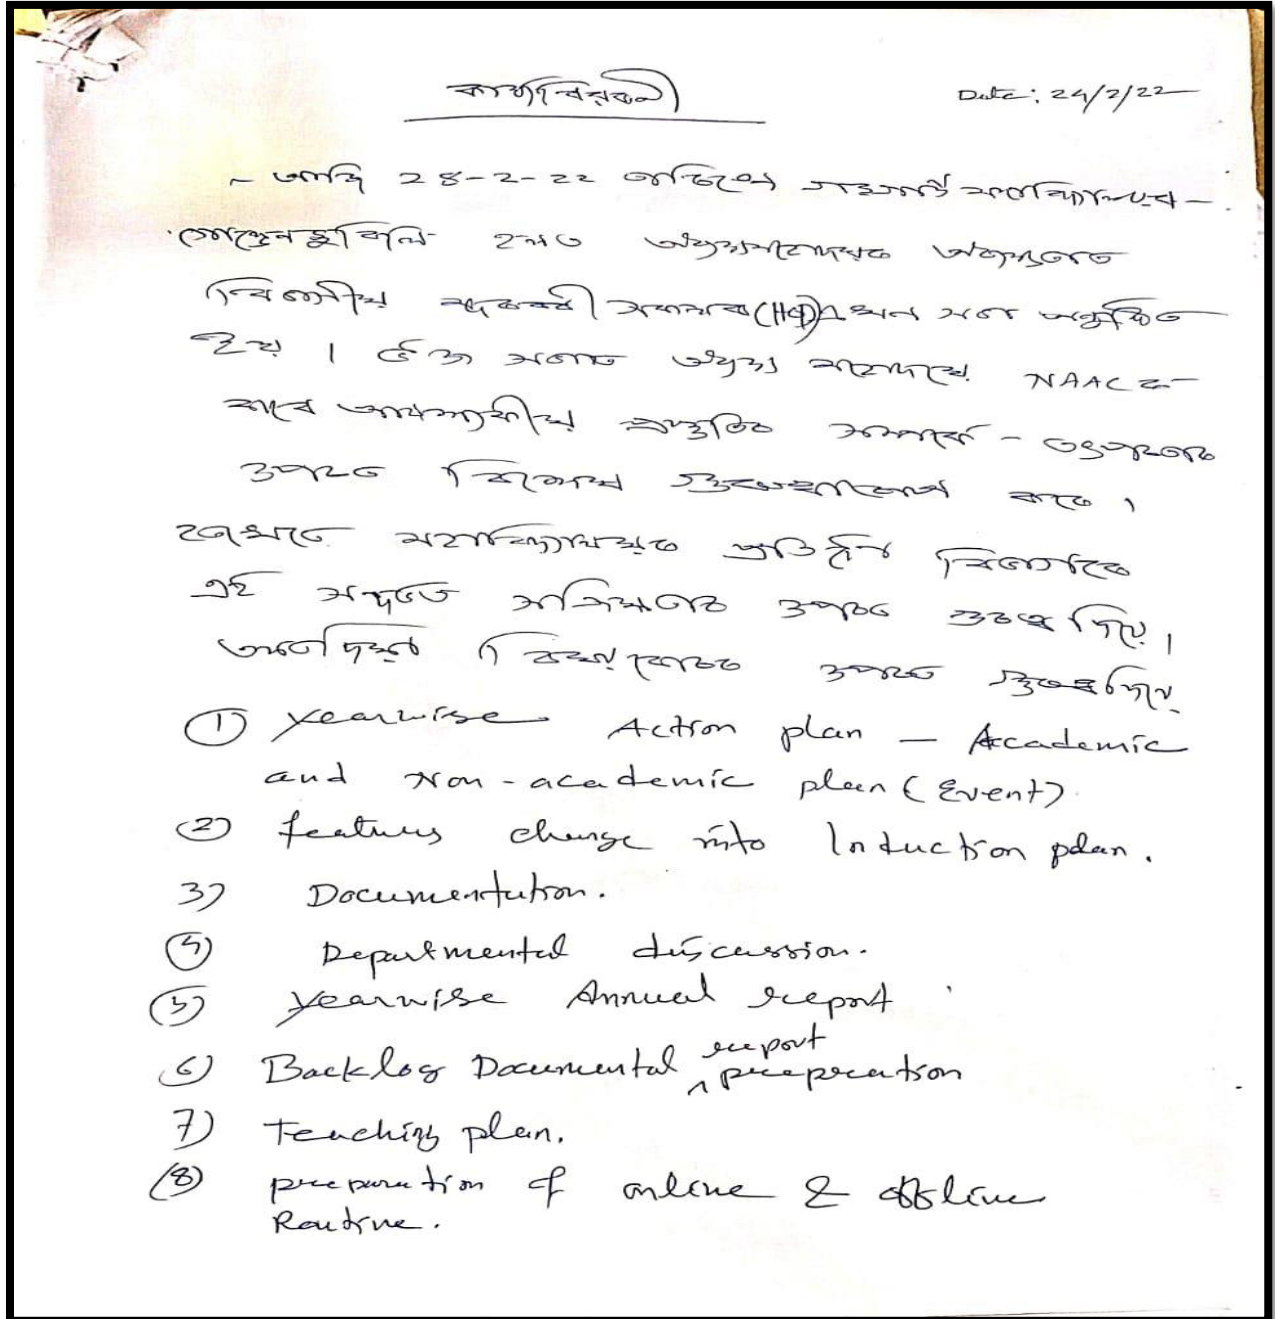 কাৰ্য্যবিৱৰণী
Date: 24/2/22
~ আজি ২৪-২-২২ তাৰিখে মহাবিদ্যালয়ৰ -
হলত অধ্যক্ষ মহোদয়ৰ
বিভাগীয় মুৰব্বী সকলৰ (HOD) এখন সভা অনুষ্ঠিত
হয় । উক্ত সভাত অধ্যক্ষ মহোদয়ে NAAC ৰ -
বাবে আবশ্যকীয় প্ৰস্তুতি সম্পৰ্কে - তৎপৰতাৰ
ওপৰত বিশেষ গুৰুত্ব আৰোপ কৰে ।
মহাবিদ্যালয়ৰ প্ৰতিটো বিভাগকে
এই সন্দৰ্ভত ওপৰত গুৰুত্ব দিয়ে ।
বিষয়বোৰৰ ওপৰত গুৰুত্ব দিয়ে
① Yearwise Action plan — Academic
and Non-academic plan (Event)
② features change into Induction plan.
3) Documentation.
④ Departmental discussion.
⑤ Yearwise Annual report
6) Backlog Documental report preperation
7) Teaching plan.
⑧ preparation of online & offline
Routine.